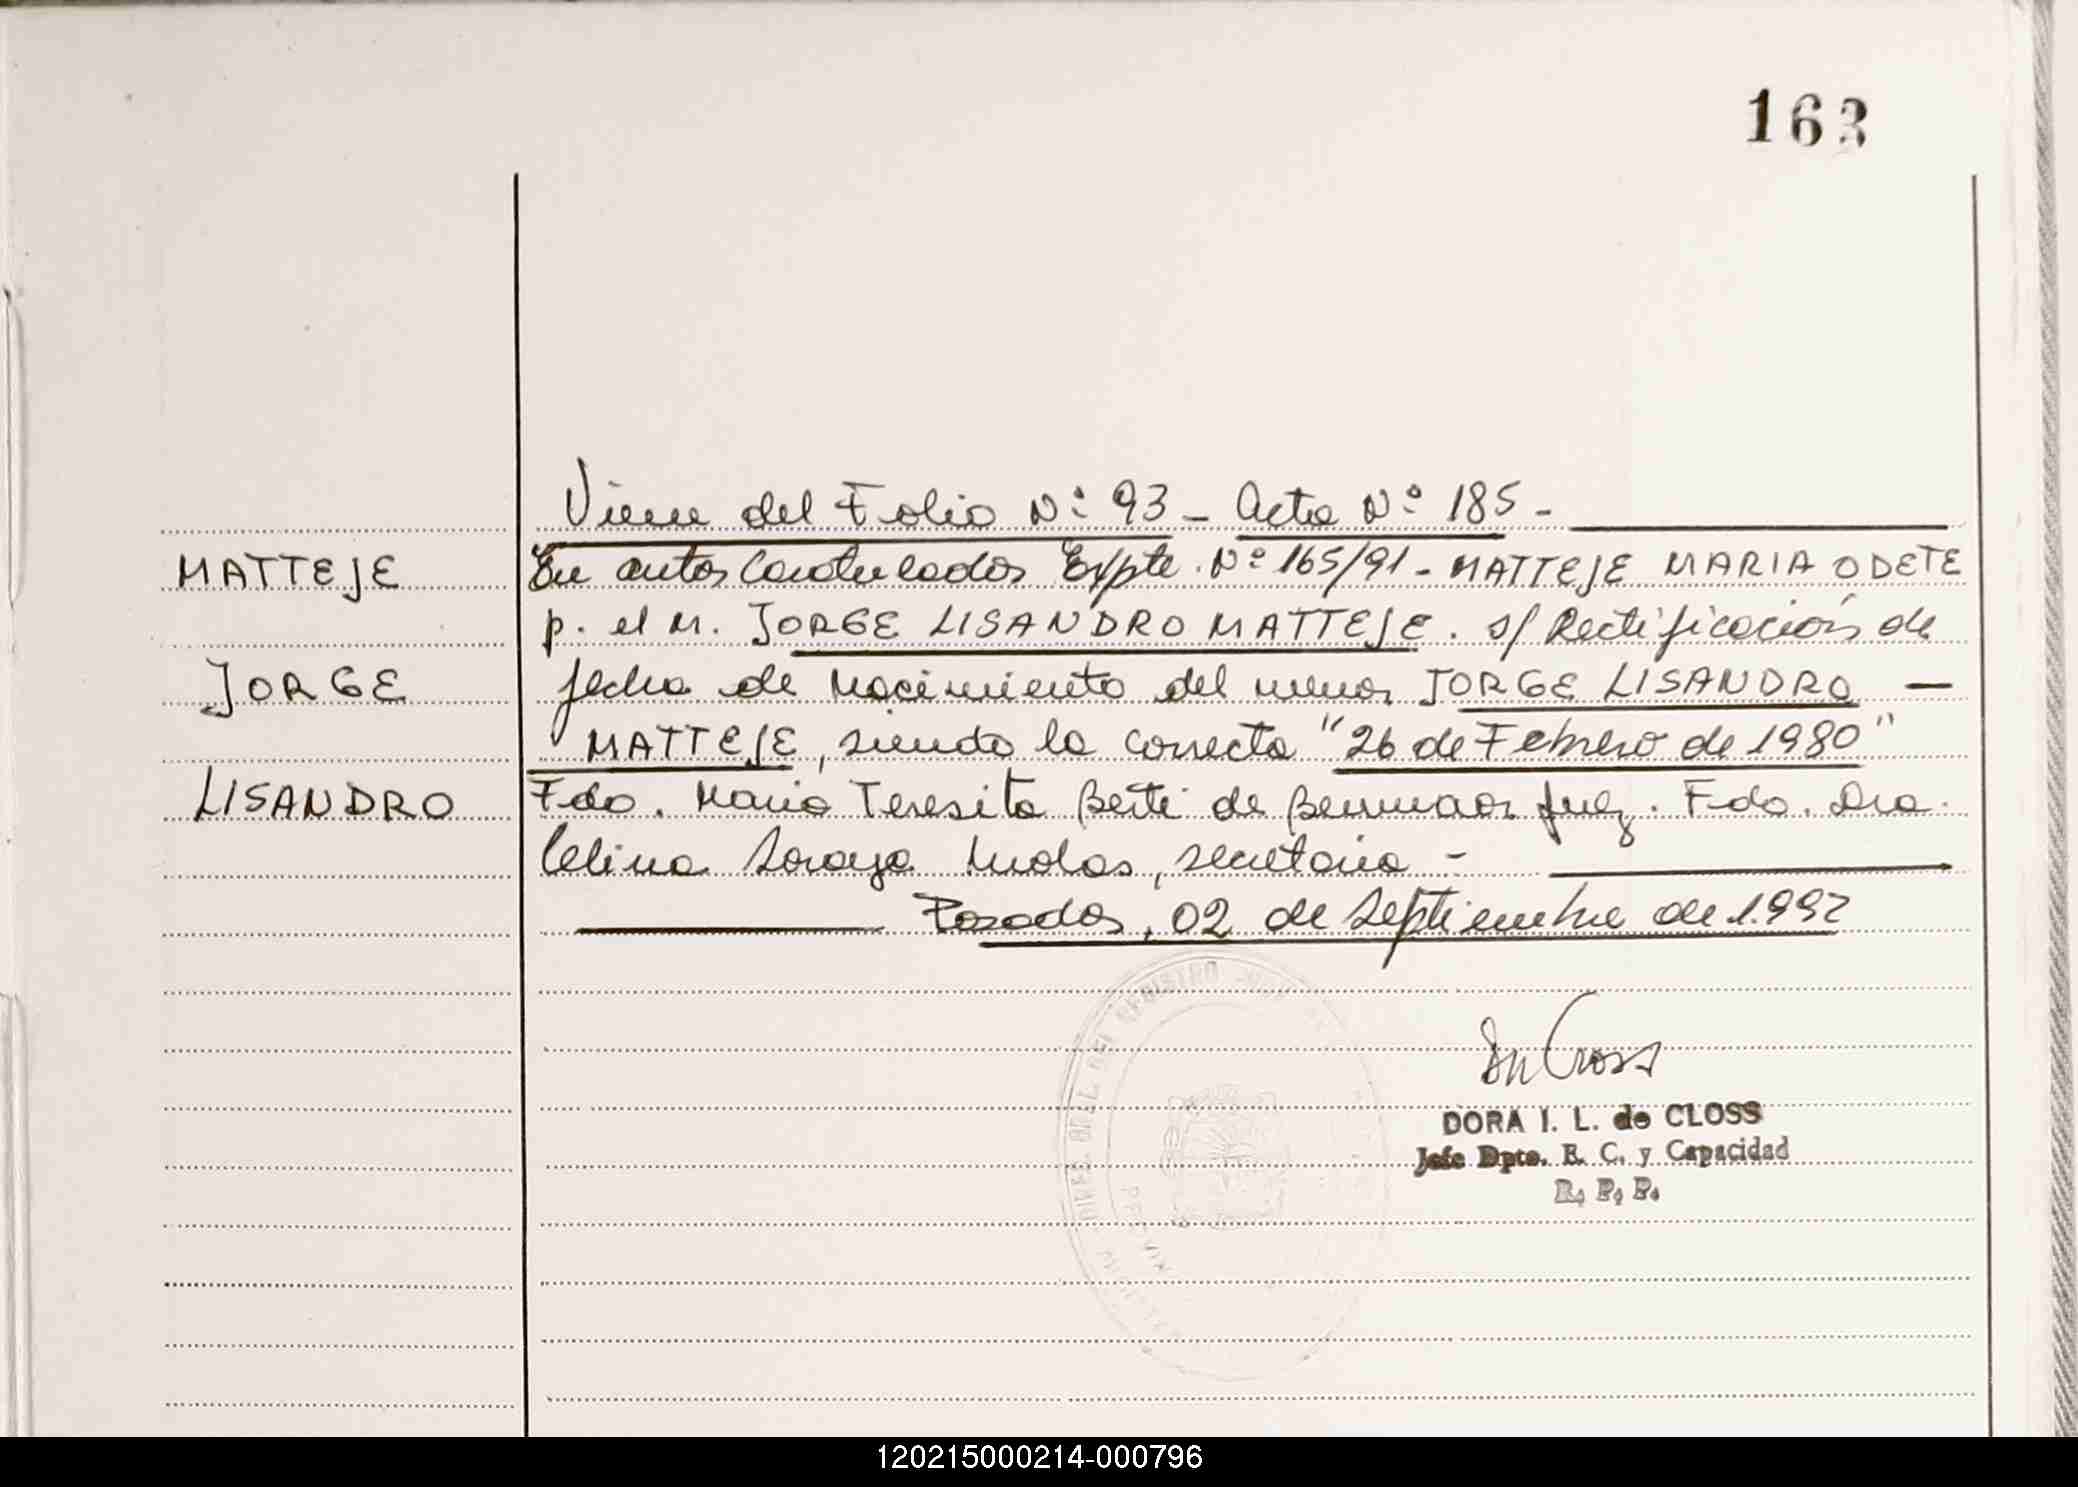 163
Viene del Folio Nº 93 - Acta Nº 185 -
MATTEJE
En autos Caratulados Expte. Nº 165/91 - MATTEJE MARIA ODETE
p. el m. JORGE LISANDRO MATTEJE. s/ Rectificación de
JORGE
fecha de Nacimiento del menor JORGE LISANDRO —
MATTEJE, siendo la correcta "26 de Febrero de 1980"
LISANDRO
Fdo. Maria Teresita Berti de Juez. Fdo. Dra.
Celina Soraya, secretaria -
Posadas, 02 de Septiembre de 1.992
DORA I. L. de CLOSS
Jefe Dpto. E. C. y Capacidad
R. P. P.
120215000214-000796